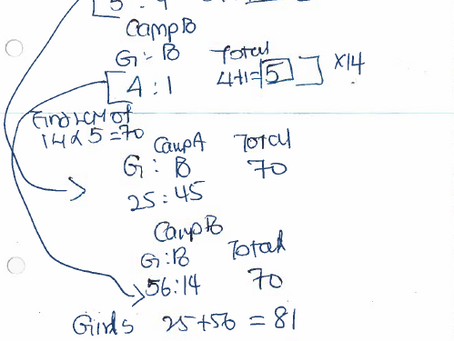 5 : 9
Camp B
G : B Total
4 : 1 4+1=5 ] x14
Find LCM of
14 & 5 = 70
Camp A Total
G : B 70
25 : 45
Camp B
G : B Total
56 : 14 70
Girls 25+56 = 81